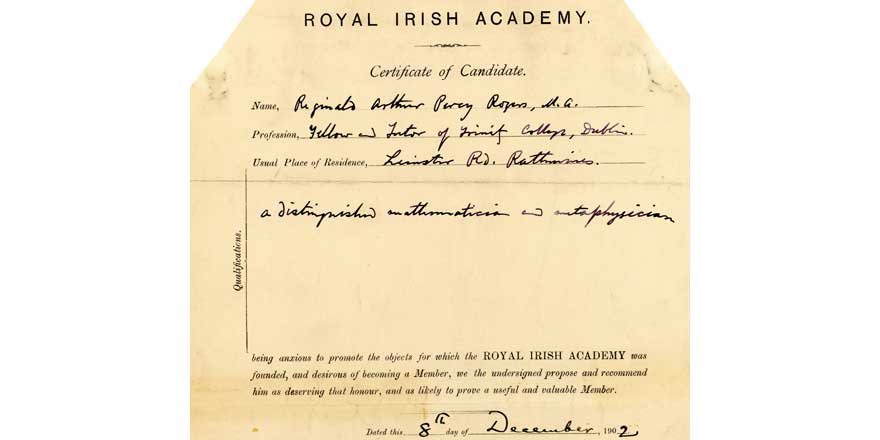 ROYAL IRISH ACADEMY.
Certificate of Candidate.
Name, Reginald Arthur Percy Rogers, M.A.
Profession, Fellow and Tutor of Trinity College, Dublin.
Usual Place of Residence, Leinster Rd. Rathmines.
Qualifications.
a distinguished mathematician and metaphysician
being anxious to promote the objects for which the ROYAL IRISH ACADEMY was
founded, and desirous of becoming a Member, we the undersigned propose and recommend
him as deserving that honour, and as likely to prove a useful and valuable Member.
Dated this 8th day of December, 1902